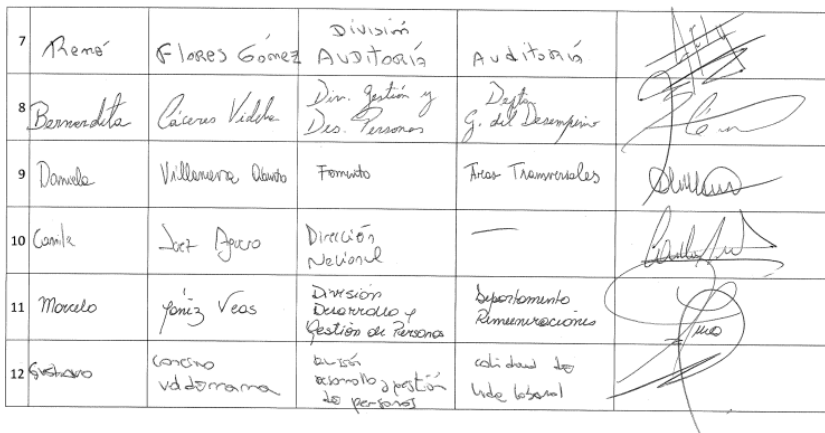 7 René Flores Gómez División Auditoría Auditoría
8 Bernardita Cáceres Videla Div. Gestión y Des. Personas Depto. G. del Desempeño
9 Daniela Villanueva Fomento Áreas Transversales
10 Camila Dirección Nacional —
11 Marcelo Yáñez Veas División Desarrollo y Gestión de Personas Departamento Remuneraciones
12 Gustavo Valderrama División Desarrollo y gestión de personas calidad de vida laboral